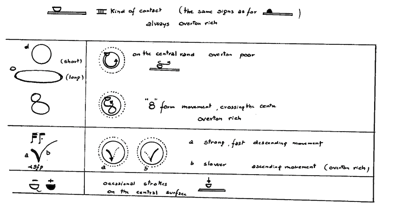 III Kind of contact (the same signs as for )
always overton rich
d
(short)
(long)
on the central rand overton poor
"8" form movement, crossing the centre
overton rich
ff
a b
a b
a strong, fast descending movement
b slower ascending movement (overton rich)
occasional strokes
on the central surface